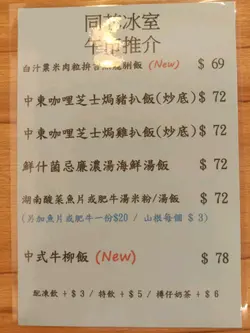 同茂冰室
午市推介
白汁粟米肉粒拼吉列龍脷飯 (New) $ 69
中東咖哩芝士焗豬扒飯(炒底) $ 72
中東咖哩芝士焗雞扒飯(炒底) $ 72
鮮什菌忌廉濃湯海鮮湯飯 $ 72
湖南酸菜魚片或肥牛湯米粉/湯飯 $ 72
(另加魚片或肥牛一份$20 / 山根每個 $ 3)
中式牛柳飯 (New) $ 78
配凍飲 + $ 3 / 特飲 + $ 5 / 樽仔奶茶 + $ 6